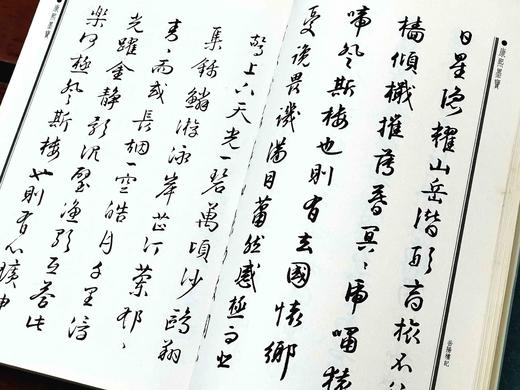 康熙墨寶
日星隱耀山岳潛形商旅不
檣傾檝摧薄暮冥〻虎嘯猿
啼登斯樓也則有去國懷鄉
憂讒畏譏滿目蕭然感極而
驚上下天光一碧萬頃沙鷗翔
集錦鱗游泳岸芷汀蘭郁〻
青〻而或長烟一空皓月千里浮
光躍金靜影沉璧漁歌互答此
樂何極登斯樓也則有心曠神
岳陽樓記
康熙墨寶